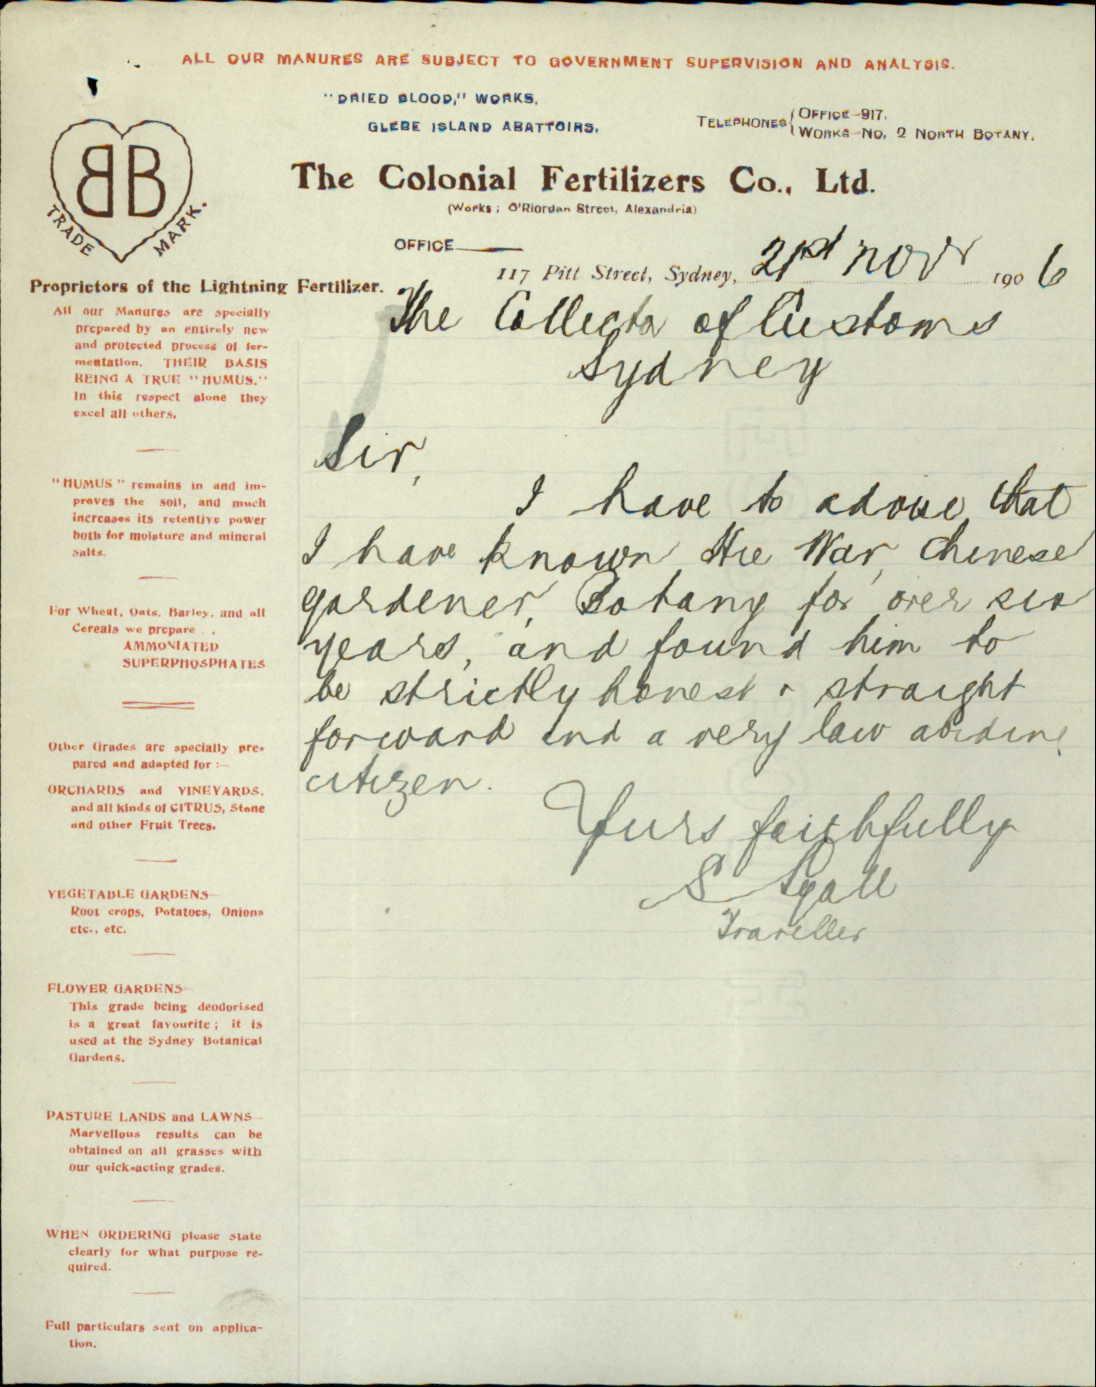 ALL OUR MANURES ARE SUBJECT TO GOVERNMENT SUPERVISION AND ANALYSIS.
"DRIED BLOOD," WORKS,
GLEBE ISLAND ABATTOIRS.
TELEPHONES { OFFICE-917.
WORKS-NO. 2 NORTH BOTANY.
BB
TRADE MARK.
The Colonial Fertilizers Co., Ltd.
(Works; O'Riordan Street, Alexandria)
OFFICE
117 Pitt Street, Sydney, 21st Novr 1906
Proprietors of the Lightning Fertilizer.
All our Manures are specially
prepared by an entirely new
and protected process of fer-
mentation. THEIR BASIS
BEING A TRUE "HUMUS."
In this respect alone they
excel all others.
"HUMUS" remains in and im-
proves the soil, and much
increases its retentive power
both for moisture and mineral
salts.
For Wheat, Oats, Barley, and all
Cereals we prepare . .
AMMONIATED
SUPERPHOSPHATES
Other Grades are specially pre-
pared and adapted for :—
ORCHARDS and VINEYARDS,
and all kinds of CITRUS, Stone
and other Fruit Trees.
VEGETABLE GARDENS—
Root crops, Potatoes, Onions
etc., etc.
FLOWER GARDENS—
This grade being deodorised
is a great favourite; it is
used at the Sydney Botanical
Gardens.
PASTURE LANDS and LAWNS—
Marvellous results can be
obtained on all grasses with
our quick-acting grades.
WHEN ORDERING please state
clearly for what purpose re-
quired.
Full particulars sent on applica-
tion.
The Collector of Customs
Sydney
Sir,
I have to advise that
I have known Hie War, Chinese
gardener, Botany for over six
years, and found him to
be strictly honest & straight
forward and a very law abiding
citizen.
Yours faithfully
S Lyall
Traveller